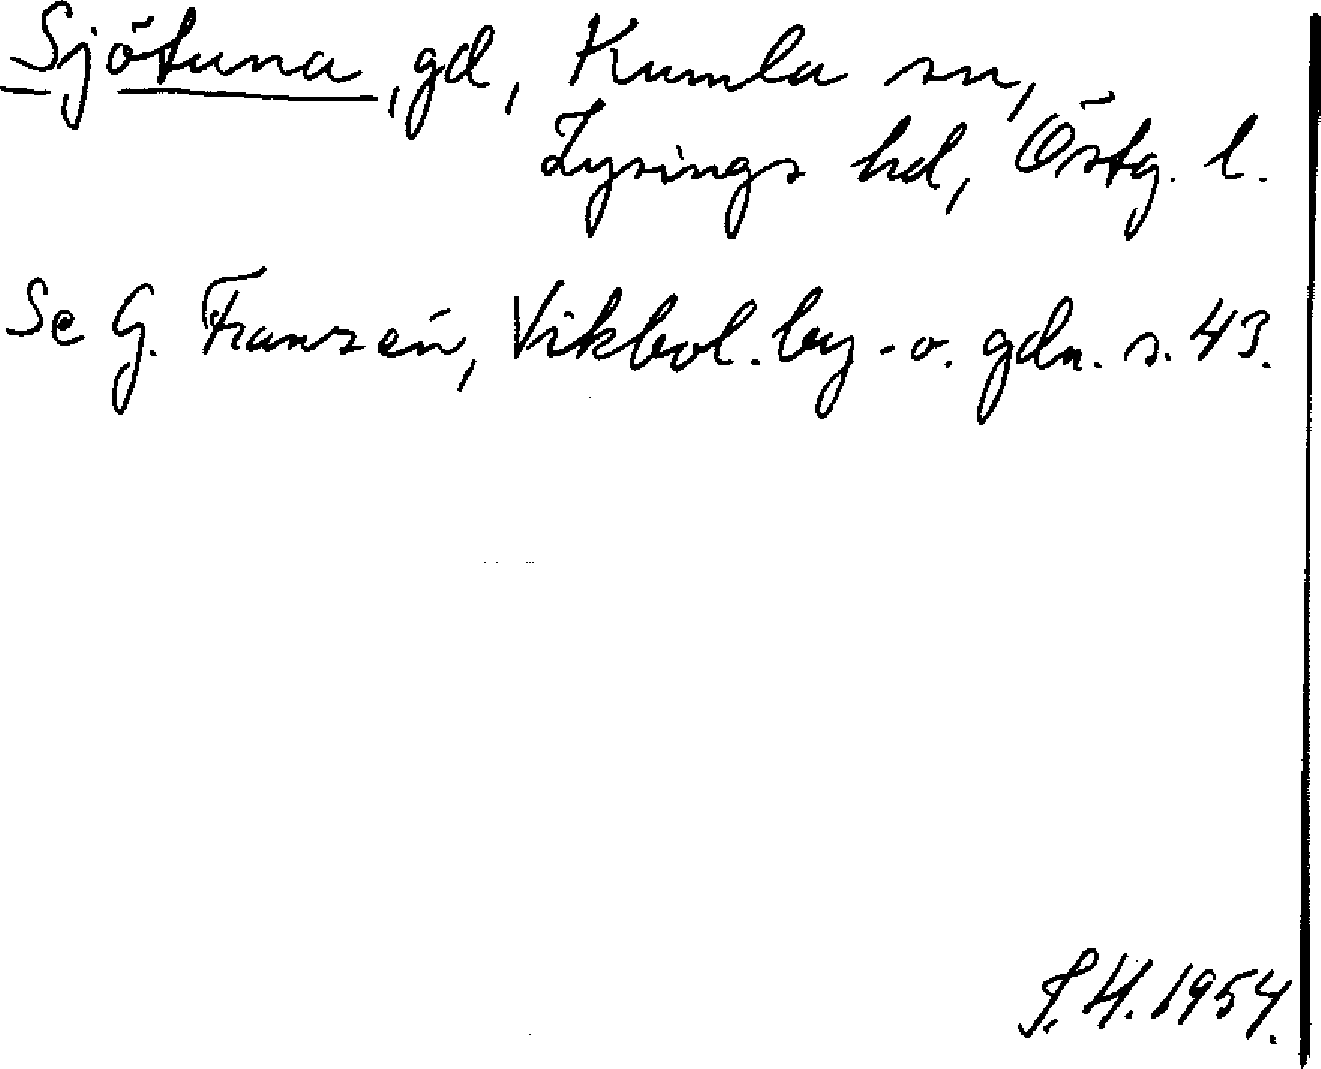 Sjötuna, gd, Kumla sn,
Lysings hd, Östg. l.
Se G. Franzén, Vikbol. by- o. gdn. s. 43.
S. H. 1954.